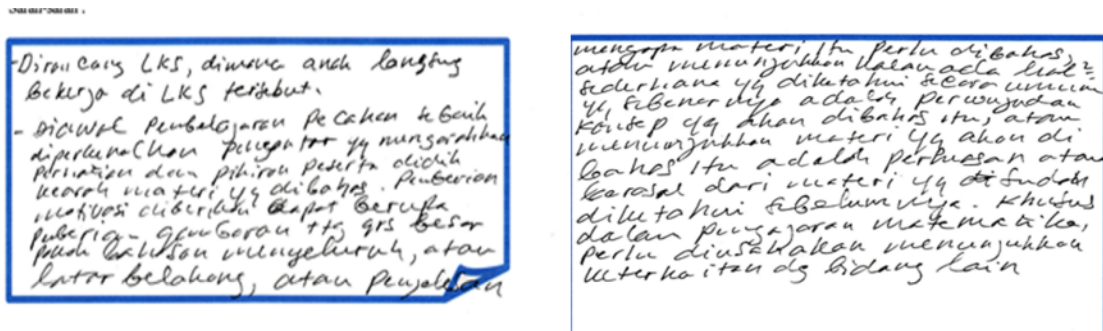 Saran-saran :
- Dirancang LKS, dimana anak langsung
bekerja di LKS tersebut.
- Diawal Pembelajaran Pecahan terbaik
diperkenalkan Pengantar yg mengarahkan
perhatian dan pikiran peserta didik
kearah materi yg dibahas. Pemberian
motivasi diberikan dapat berupa
pemberian gambaran ttg grs besar
pokok bahasan menyeluruh, atau
latar belakang, atau penjelasan
mengapa materi itu perlu dibahas,
atau menunjukkan kalau ada hal²
sederhana yg diketahui secara umum
yg sebenarnya adalah perwujudan
konsep yg akan dibahas itu, atau
menunjukkan materi yg akan di
bahas itu adalah perluasan atau
berasal dari materi yg sudah
diketahui sebelumnya. Khusus
dalam pengajaran matematika,
perlu diusahakan menunjukkan
keterkaitan dg bidang lain